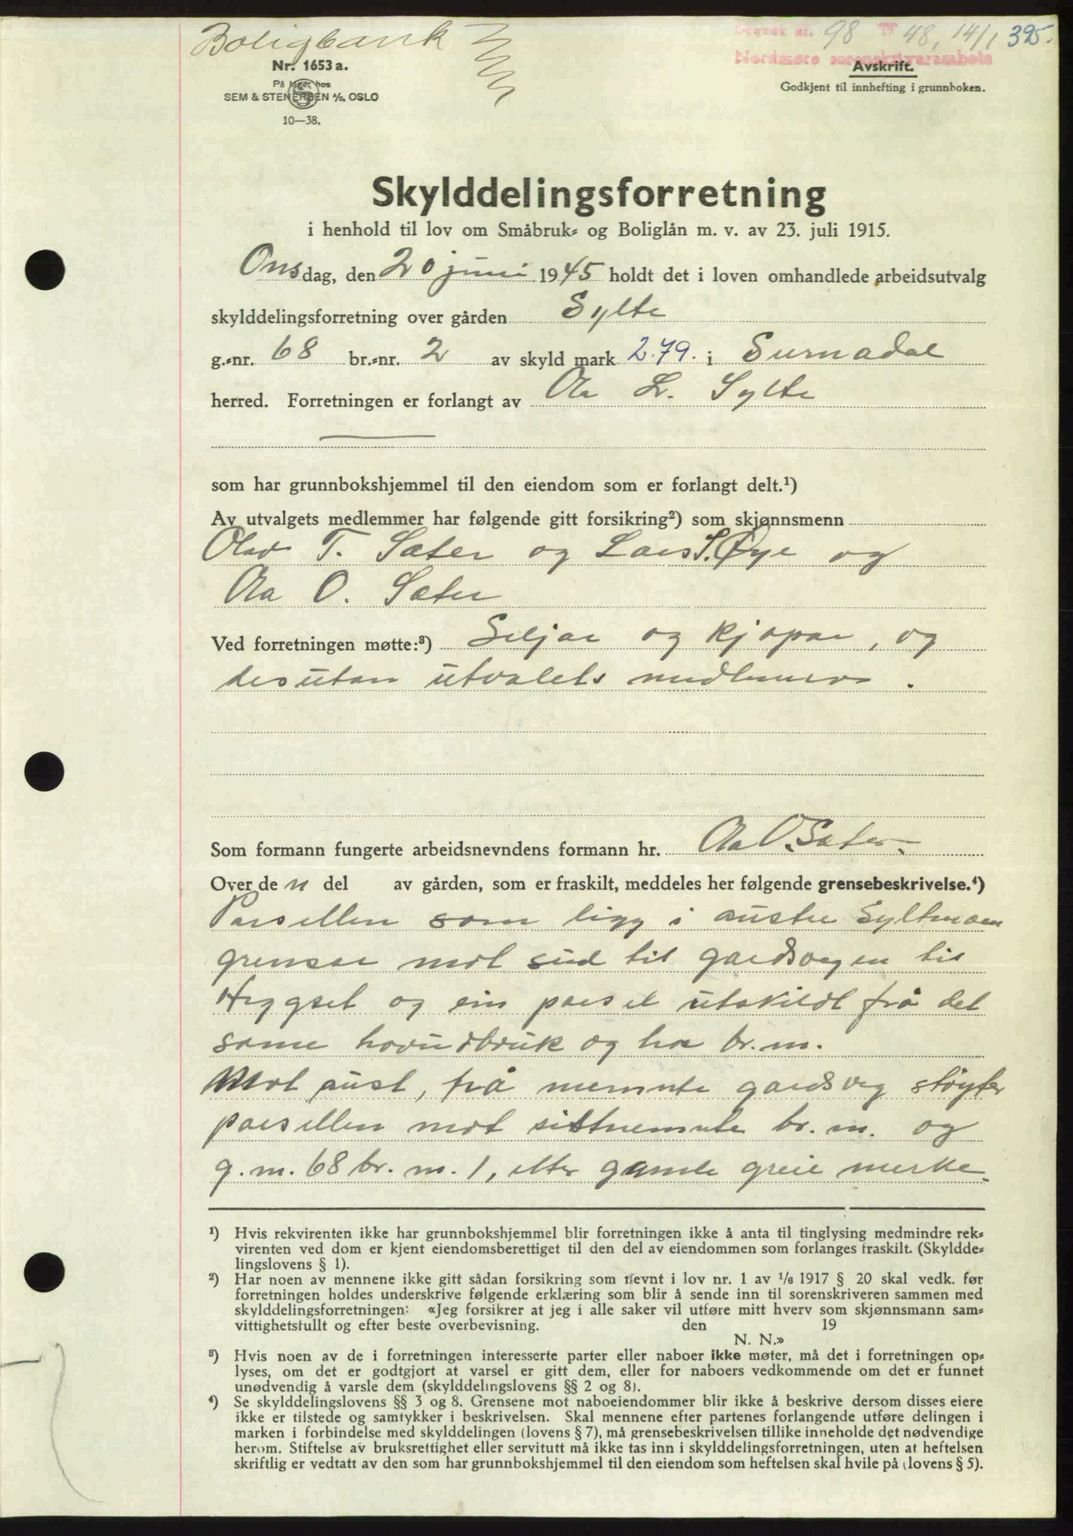 Boligbank
Dagbok nr. 98 19 48, 14/1 395.
Nordmøre sorenskriverembete
Nr. 1653 a.
På lager hos
SEM & STENERSEN A/S, OSLO
10—38.
Avskrift.
Godkjent til innhefting i grunnboken.
Skylddelingsforretning
i henhold til lov om Småbruk- og Boliglån m. v. av 23. juli 1915.
Onsdag, den 20 juni 1945 holdt det i loven omhandlede arbeidsutvalg
skylddelingsforretning over gården Sylte
g.-nr. 68 br.-nr. 2 av skyld mark 2.79. i Surnadal
herred. Forretningen er forlangt av Ola L. Sylte
som har grunnbokshjemmel til den eiendom som er forlangt delt.¹)
Av utvalgets medlemmer har følgende gitt forsikring²) som skjønnsmenn
Olav T. Sæter og Lars S. Øye og
Ola O. Sæter
Ved forretningen møtte:³) Seljar og kjøpar, og
desutan utvalets medlemer.
Som formann fungerte arbeidsnevndens formann hr. Ola O. Sæter.
Over de n del av gården, som er fraskilt, meddeles her følgende grensebeskrivelse.⁴)
Parsellen som ligg i austre Syltmoen
grensar mot sud til gardsvegen til
Hyggset og ein parsel utskildt frå det
same hovudbruk og har br. nr.
Mot aust, frå nemnte gardsveg støyter
parsellen mot sistnemnte br. nr. og
g. nr. 68 br. nr. 1, etter gamle greie merke.
¹) Hvis rekvirenten ikke har grunnbokshjemmel blir forretningen ikke å anta til tinglysing medmindre rek-
virenten ved dom er kjent eiendomsberettiget til den del av eiendommen som forlanges fraskilt. (Skyldde-
lingslovens § 1).
²) Har noen av mennene ikke gitt sådan forsikring som nevnt i lov nr. 1 av 1/6 1917 § 20 skal vedk. før
forretningen holdes underskrive følgende erklæring som blir å sende inn til sorenskriveren sammen med
skylddelingsforretningen: «Jeg forsikrer at jeg i alle saker vil utføre mitt hverv som skjønnsmann sam-
vittighetsfullt og efter beste overbevisning. den 19
N. N.»
³) Hvis noen av de i forretningen interesserte parter eller naboer ikke møter, må det i forretningen op-
lyses, om det er godtgjort at varsel er gitt dem, eller for naboers vedkommende om det er funnet
unødvendig å varsle dem (skylddelingslovens §§ 2 og 8).
⁴) Se skylddelingslovens §§ 3 og 8. Grensene mot naboeiendommer blir ikke å beskrive dersom disses eiere
ikke er tilstede og samtykker i beskrivelsen. Skal mennene efter partenes forlangende utføre delingen i
marken i forbindelse med skylddelingen (lovens § 7), må grensebeskrivelsen tillike inneholde det nødvendige
herom. Stiftelse av bruksrettighet eller servitutt må ikke tas inn i skylddelingsforretningen, uten at heftelsen
skriftlig er vedtatt av den som har grunnbokshjemmel til den eiendom som heftelsen skal hvile på (lovens § 5).